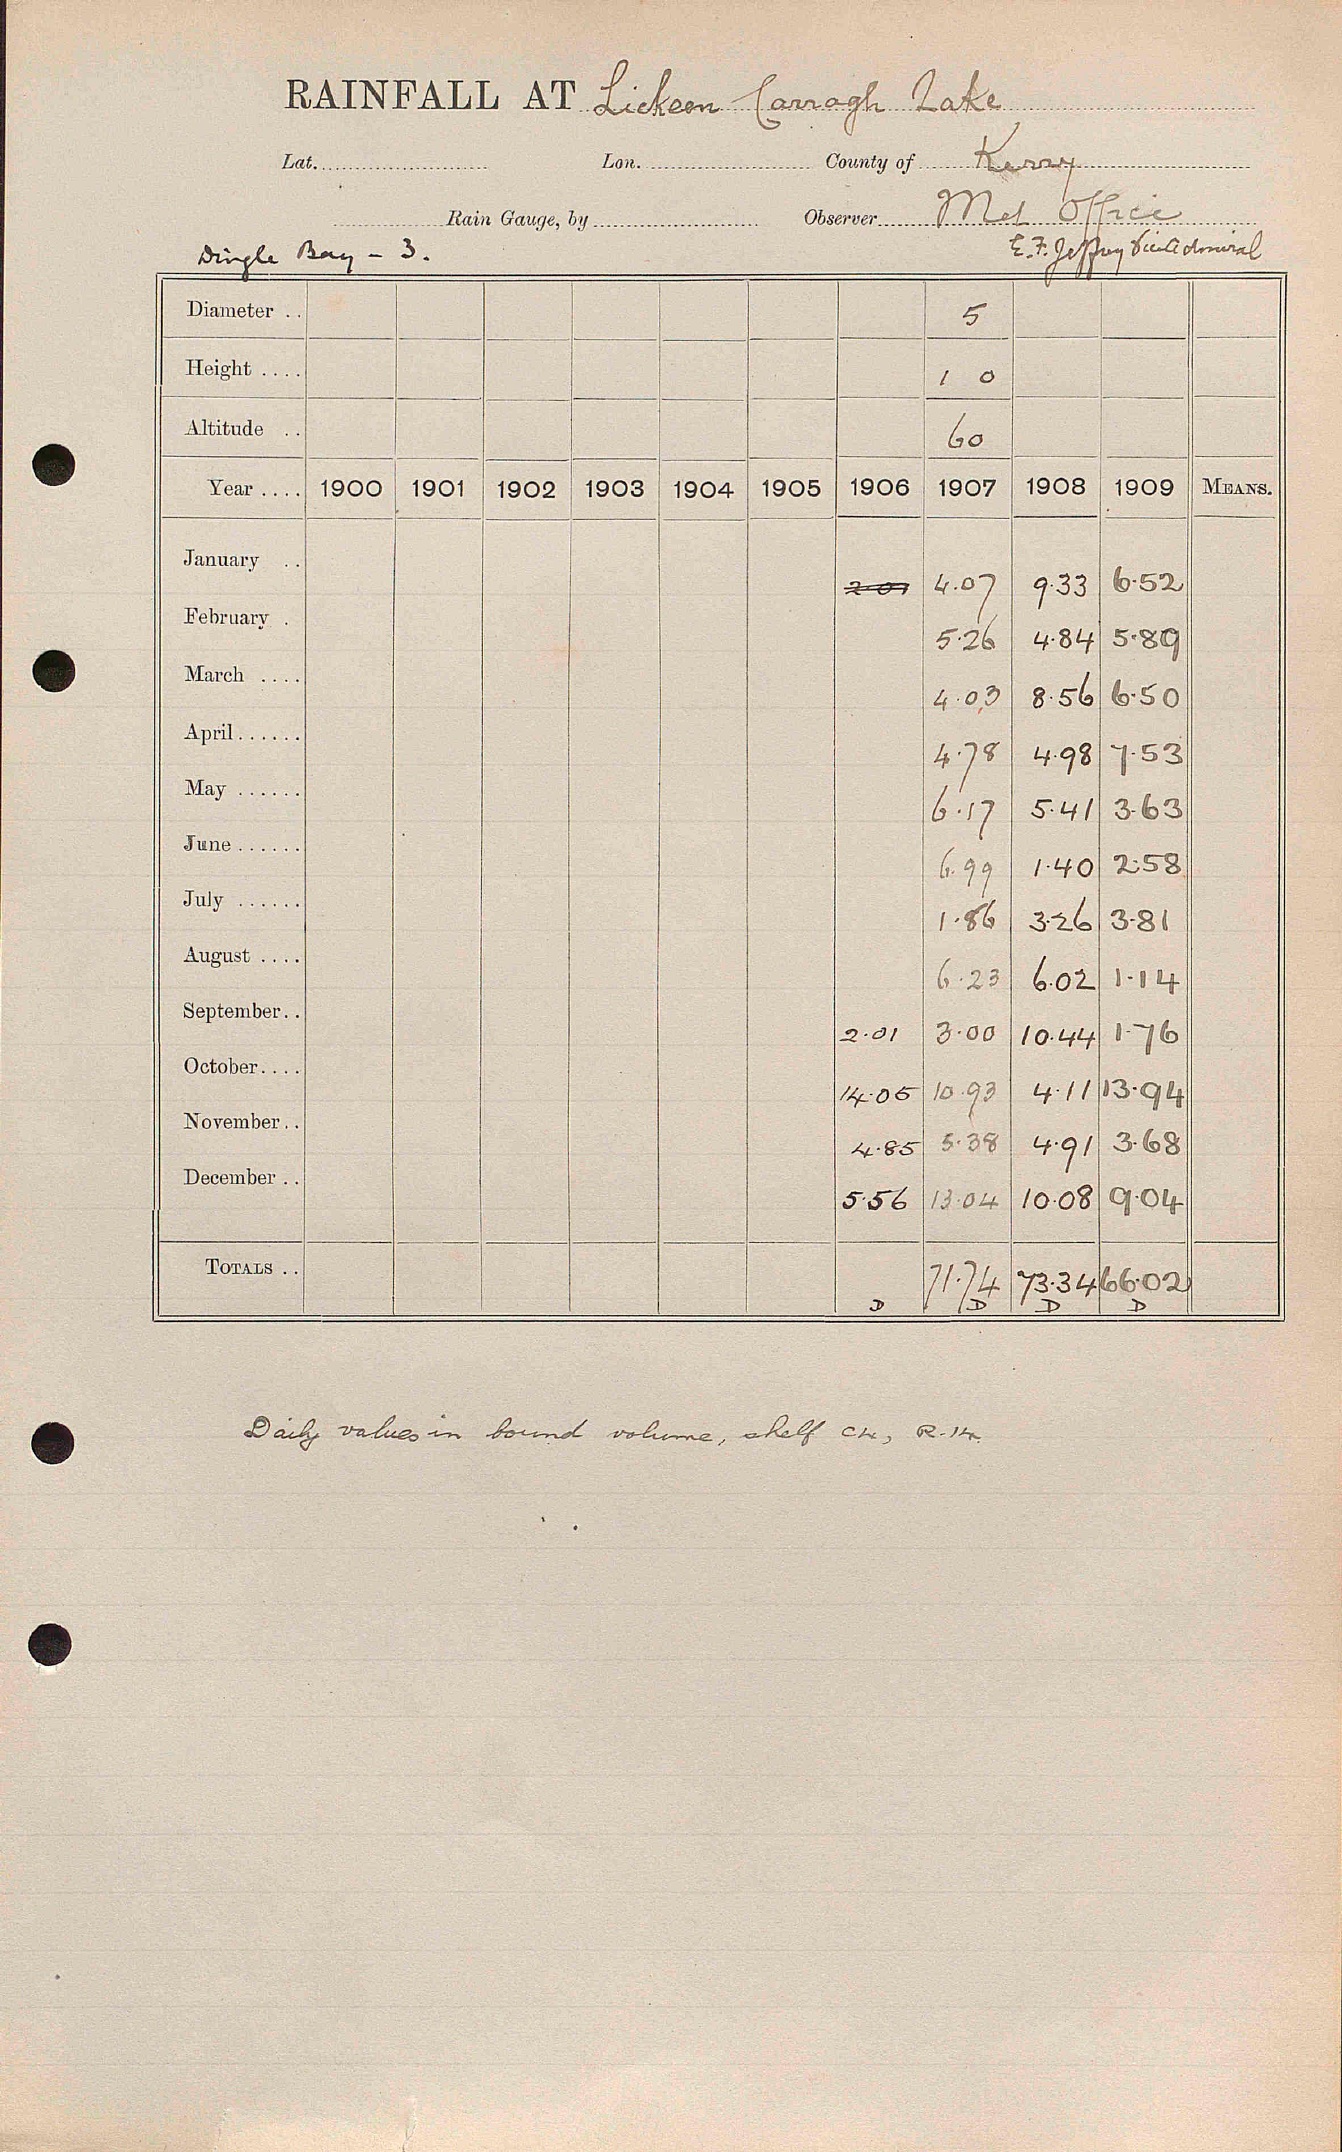 RAINFALL AT Lickeen Carragh Lake
Lat. Lon. County of Kerry
Rain Gauge, by Observer Met Office
Dingle Bay - 3. E. F. Jeffrey Vice Admiral
Diameter .. 5
Height .... 1 0
Altitude .. 60
Year .... 1900 1901 1902 1903 1904 1905 1906 1907 1908 1909 MEANS.
January .. 4.07 9.33 6.52
February . 5.26 4.84 5.89
March .... 4.03 8.56 6.50
April ...... 4.78 4.98 7.53
May ...... 6.17 5.41 3.63
June ...... 6.99 1.40 2.58
July ...... 1.86 3.26 3.81
August .... 6.23 6.02 1.14
September .. 2.01 3.00 10.44 1.76
October .... 14.05 10.93 4.11 13.94
November .. 4.85 5.38 4.91 3.68
December .. 5.56 13.04 10.08 9.04
TOTALS .. 71.74 73.34 66.02
D D D D
Daily values in bound volume, shelf C4, R.14.